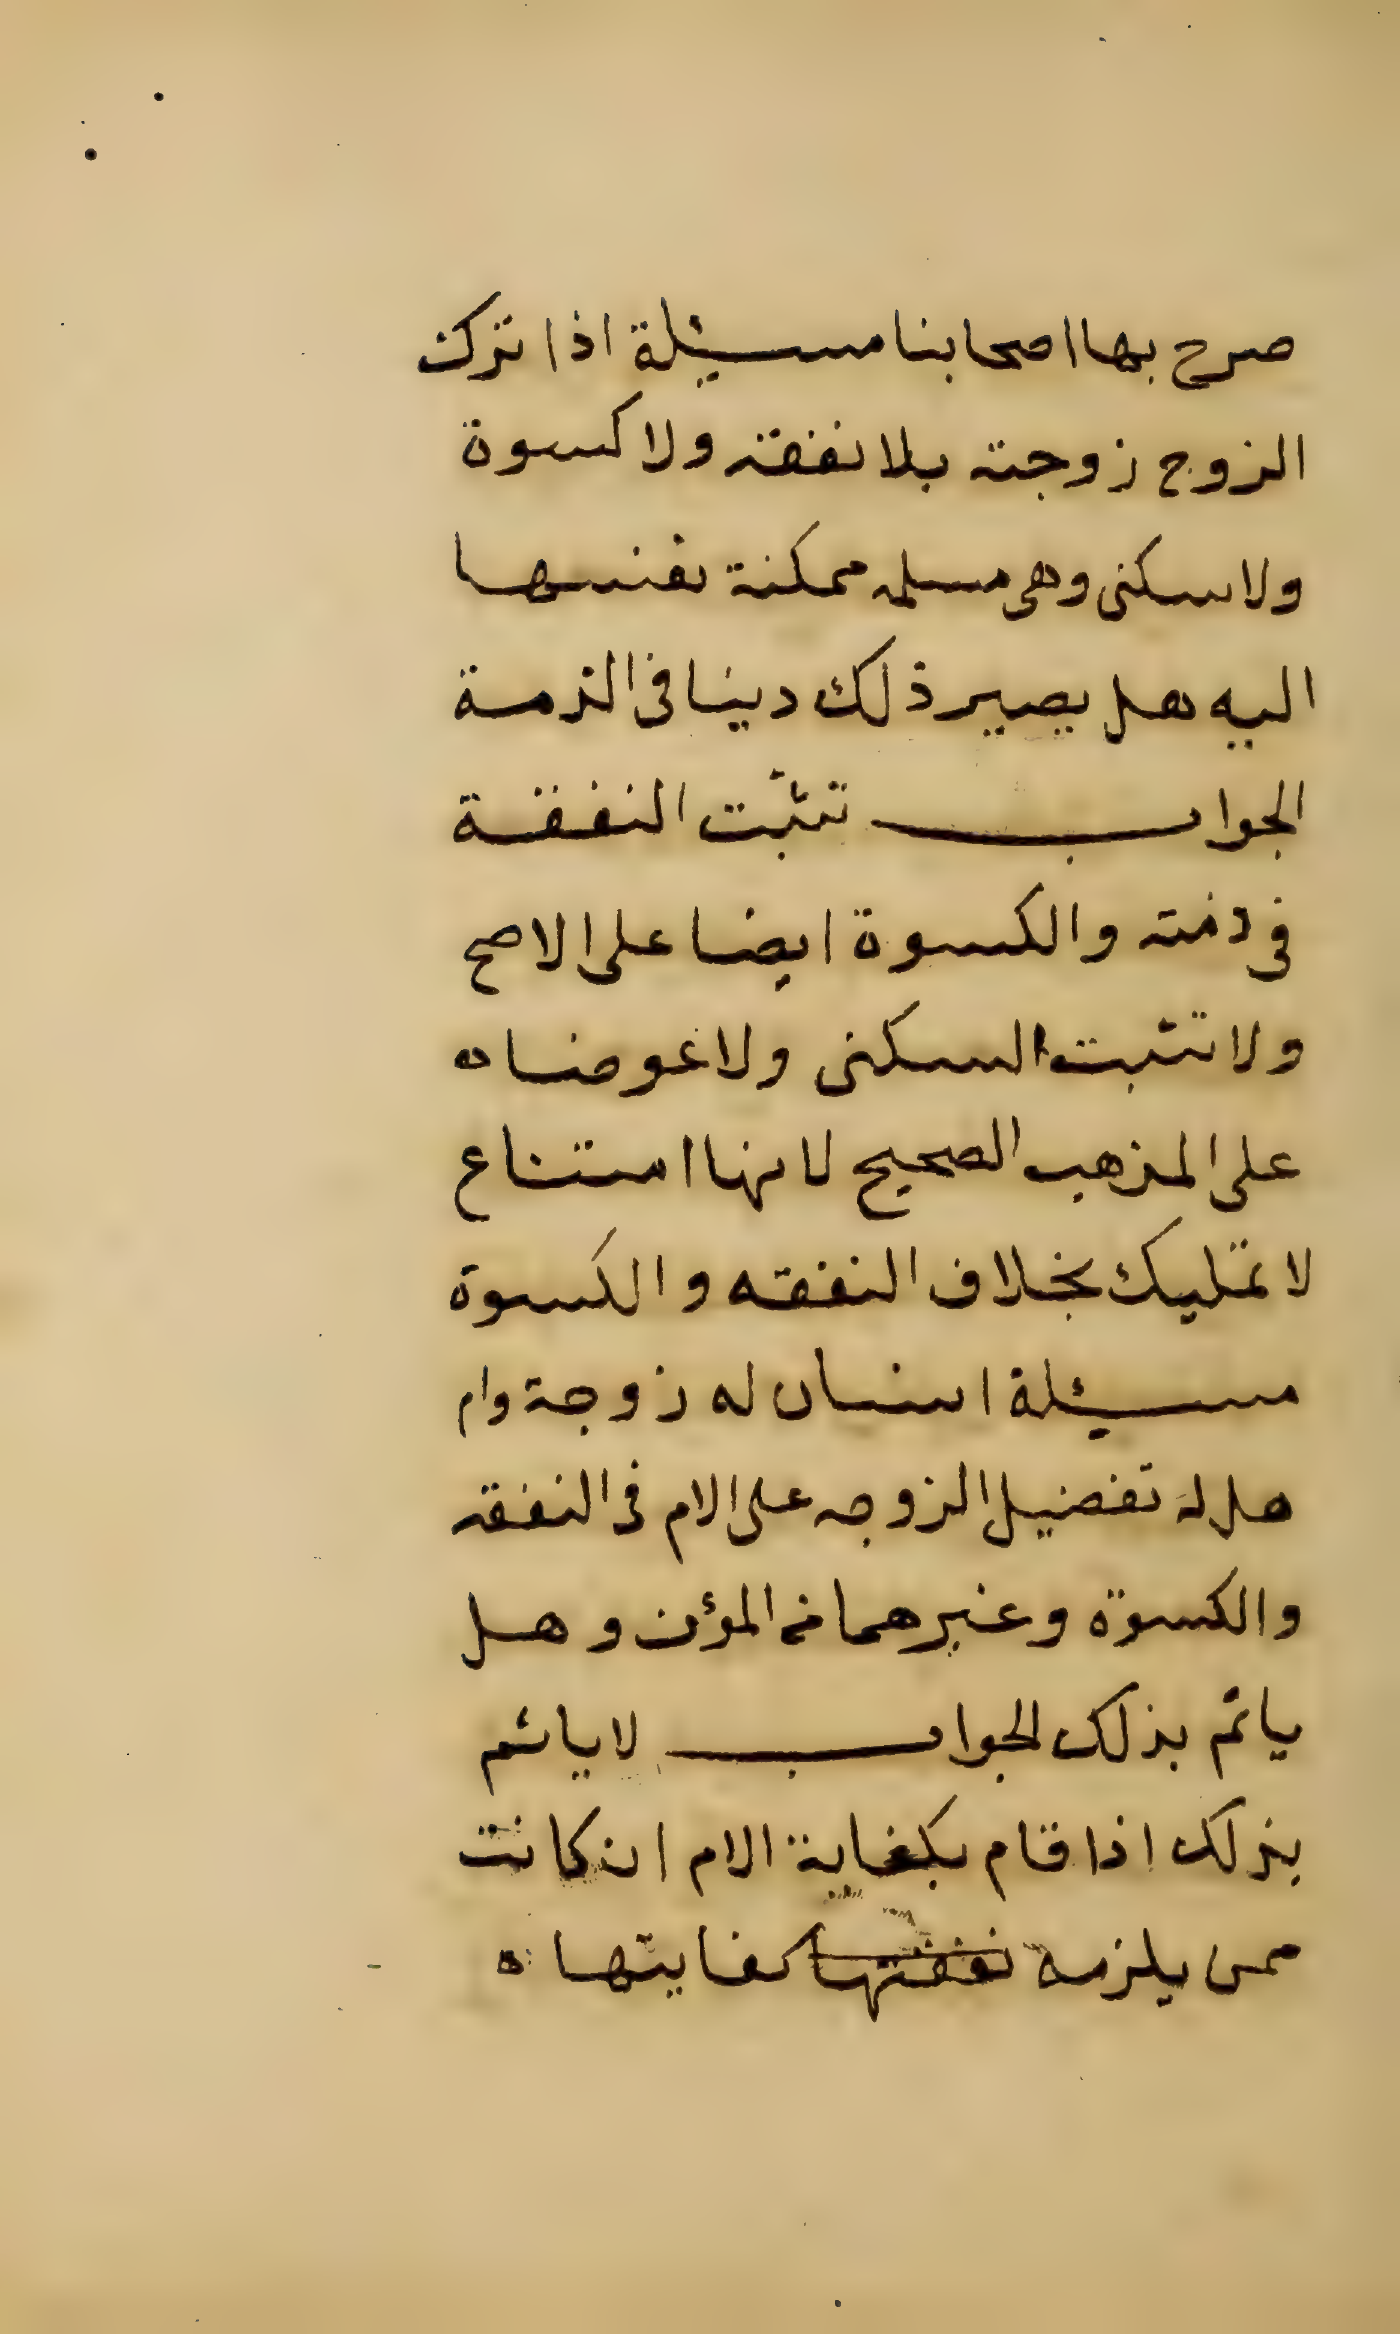 صرح بها اصحابنا مسئلة اذا ترك
الزوج زوجته بلا نفقة ولا كسوة
ولا سكنى وهى مسلمه ممكنة نفسها
اليه هل يصير ذلك دينا فى الذمة
الجواب تثبت النفقة
فى ذمته والكسوة ايضا على الاصح
ولا تثبت السكنى ولا عوضها ه
على المذهب الصحيح لانها امتناع
لا تمليك بخلاف النفقه والكسوة
مسئلة انسان له زوجة وام
هل له تفضيل الزوجه على الام فى النفقة
والكسوة وغيرهما من المؤن وهل
ياثم بذلك الجواب لا ياثم
بذلك اذا قام بكفاية الام ان كانت
ممن يلزمه نفقتها كفايتها ه